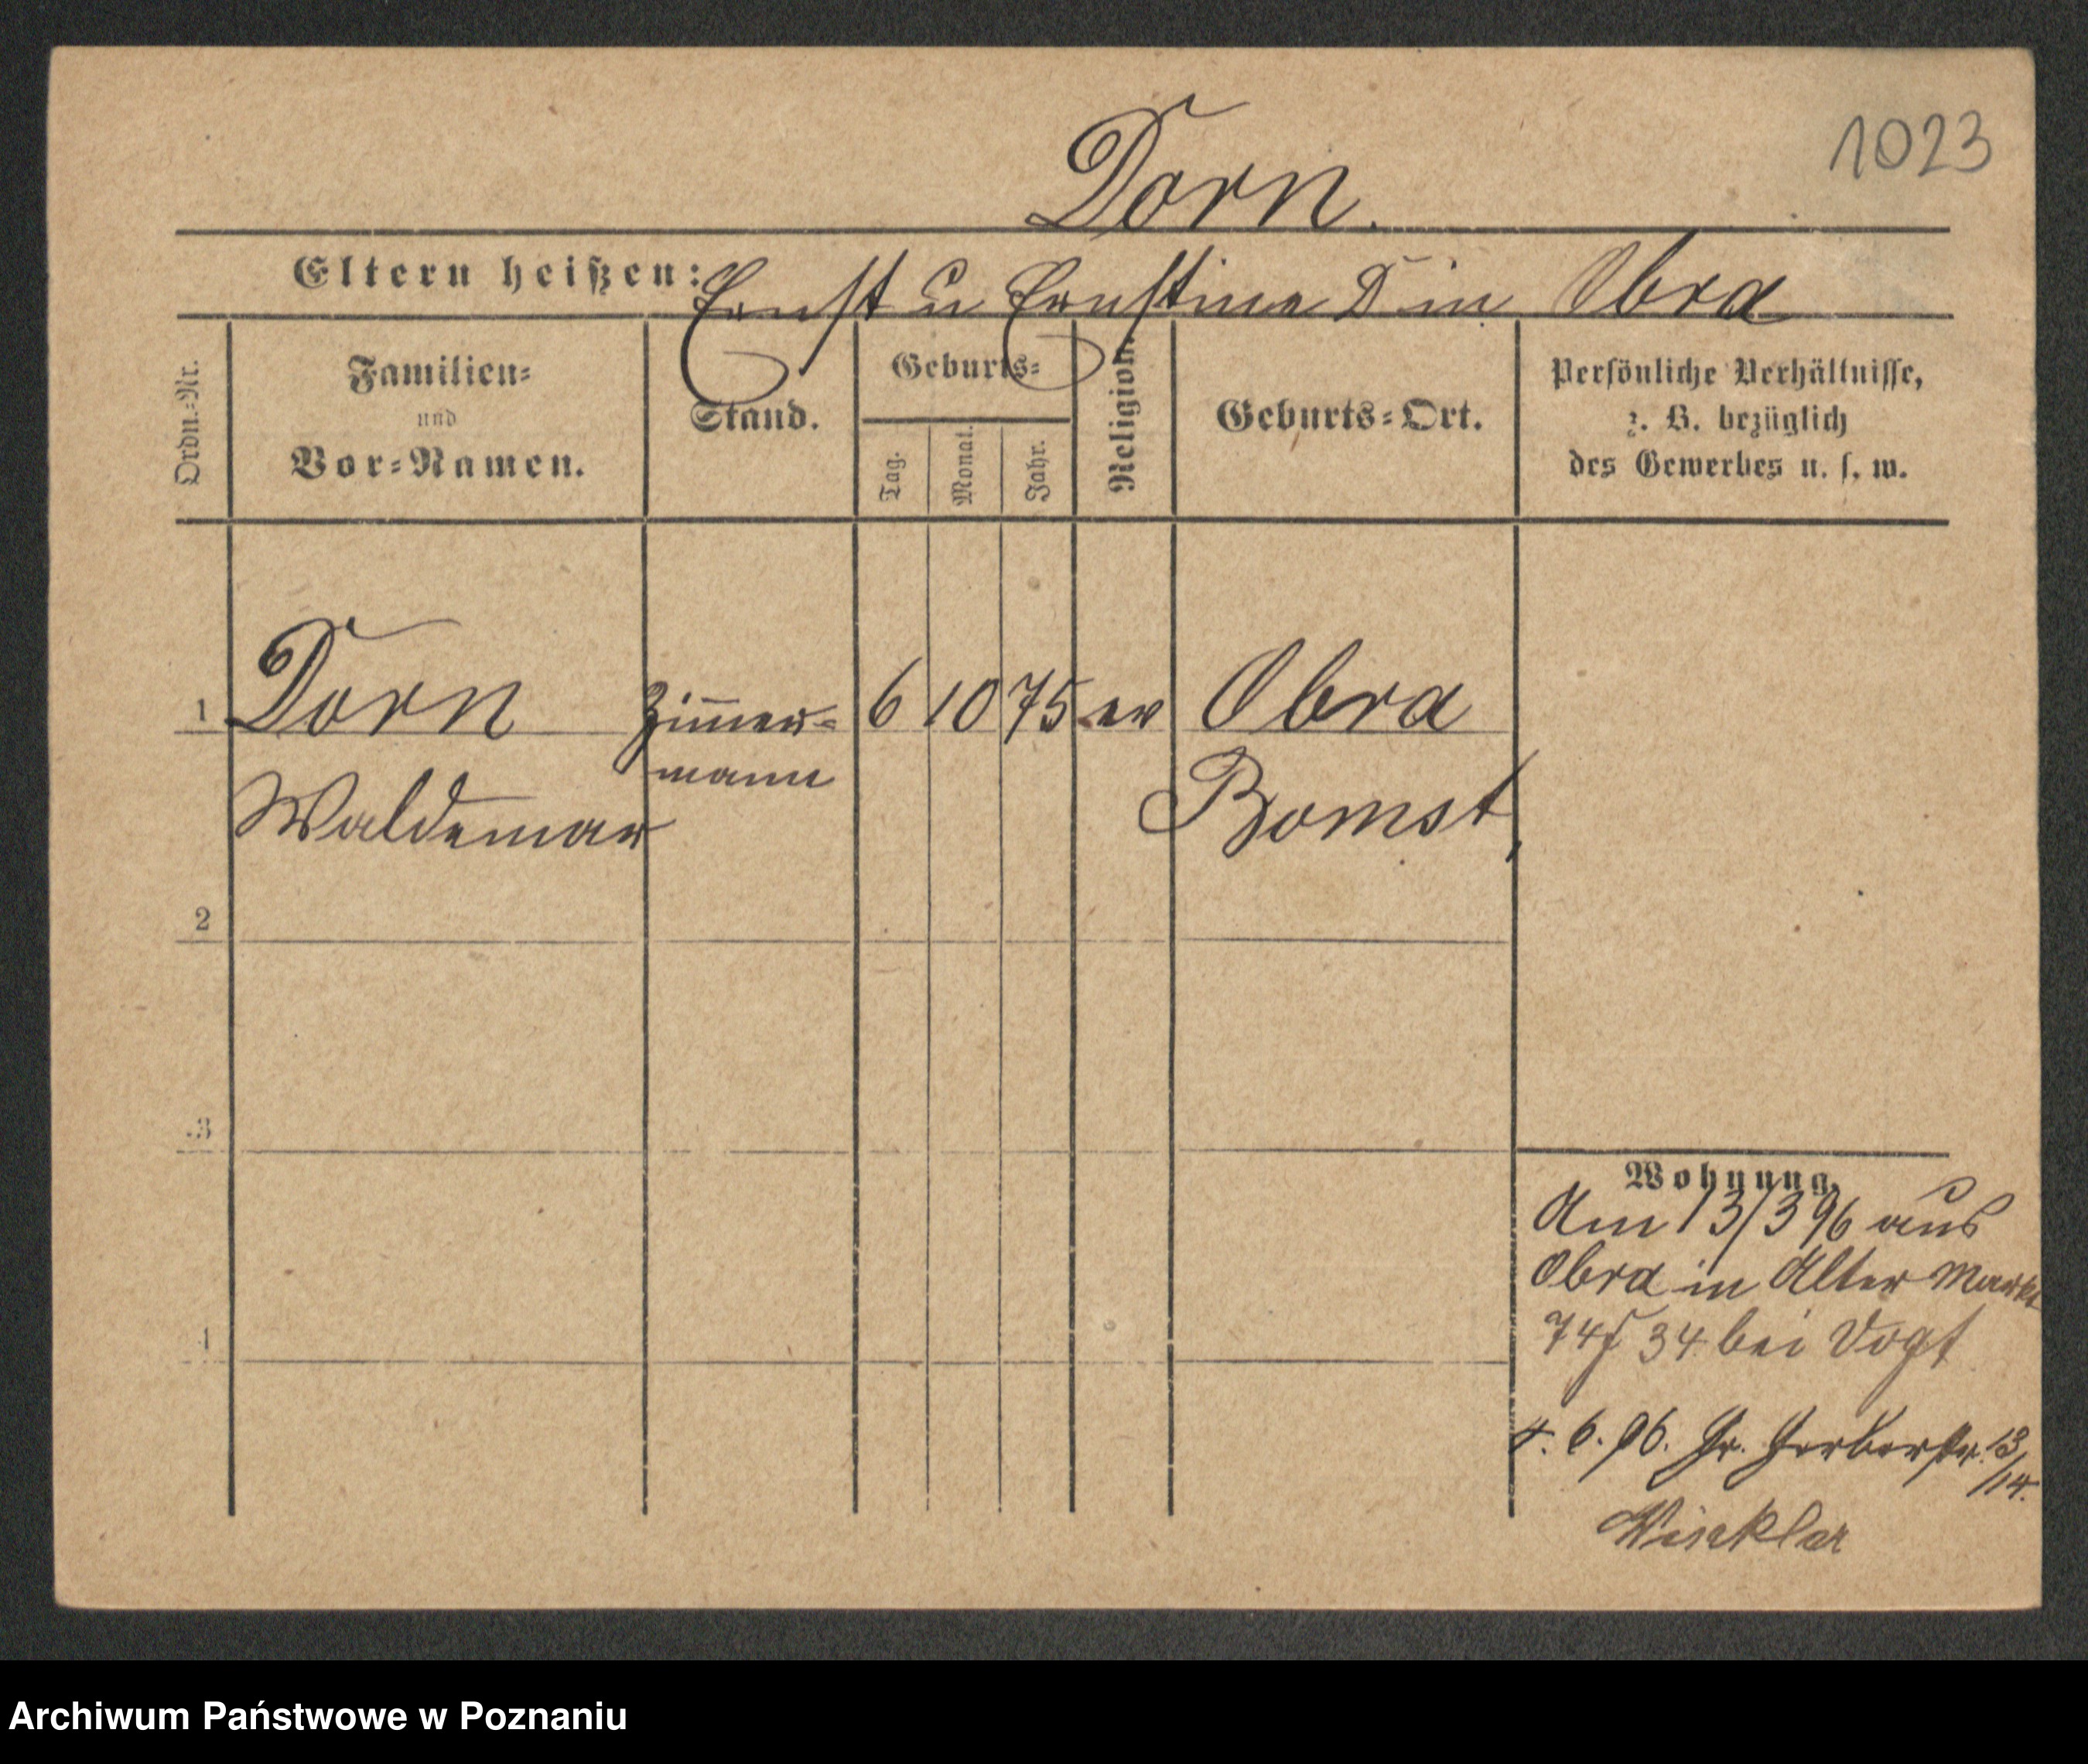 1023
Dorn.
Eltern heißen: Ernst u Ernstine D in Obra
Ordn.-Nr.
Familien-
und
Vor-Namen.
Stand.
Geburts-
Tag.
Monat.
Jahr.
Religion.
Geburts-Ort.
Persönliche Verhältnisse,
z. B. bezüglich
des Gewerbes u. s. w.
1 Dorn Zimmer- 6 10 75 ev Obra
mann
Waldemar Bomst,
2
3
4
Wohnung.
Am 13/3 96 aus
Obra in Alter Markt
74 34 bei Vogt
4. 6. 96. Gr. Gerberstr. 13
/14.
Archiwum Państwowe w Poznaniu